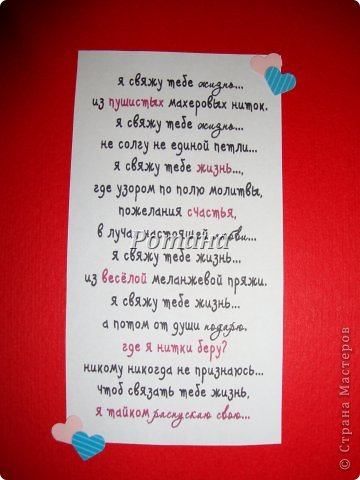 я свяжу тебе жизнь...
из пушистых махеровых ниток.
я свяжу тебе жизнь...
не солгу не единой петли...
я свяжу тебе жизнь...,
где узором по полю молитвы,
пожелания счастья,
в лучах настоящей любви...
Ротина
я свяжу тебе жизнь...
из весёлой меланжевой пряжи.
я свяжу тебе жизнь...
а потом от души подарю.
где я нитки беру?
никому никогда не признаюсь...
чтоб связать тебе жизнь,
я тайком распускаю свою...
© Страна Мастеров